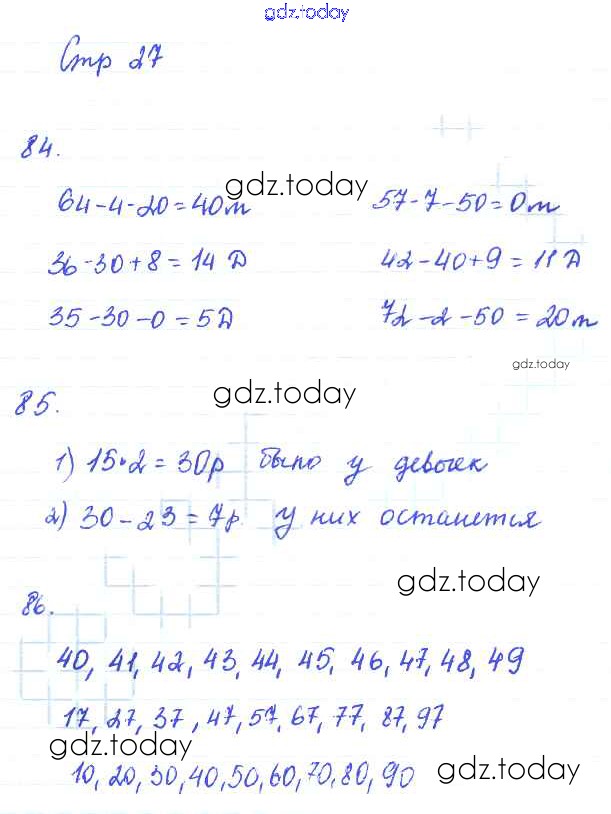 gdz.today
Стр 27
84.
64-4-20=40т 57-7-50=0т
gdz.today
36-30+8=14 Д 42-40+9=11 Д
35-30-0=5Д 72-2-50=20т
gdz.today
gdz.today
85.
1) 15·2=30р было у девочек
2) 30-23=7р. у них останется
gdz.today
86.
40, 41, 42, 43, 44, 45, 46, 47, 48, 49
17, 27, 37, 47, 57, 67, 77, 87, 97
gdz.today
10, 20, 30, 40, 50, 60, 70, 80, 90
gdz.today